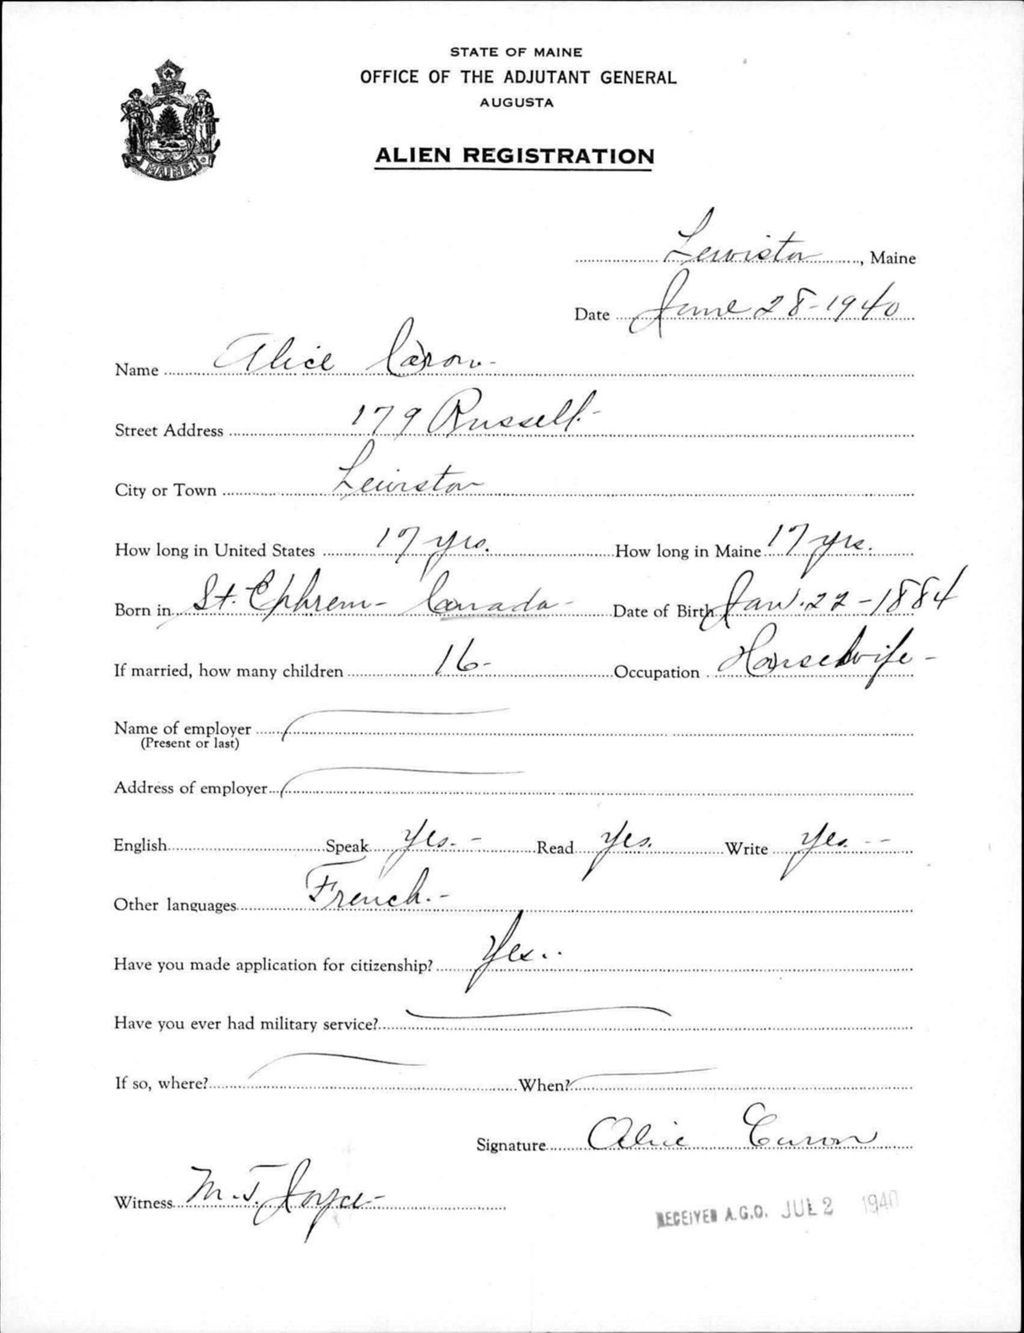 STATE OF MAINE
OFFICE OF THE ADJUTANT GENERAL
AUGUSTA
ALIEN REGISTRATION
MAINE
Lewiston, Maine
Date June 28-1940
Name Alice Caron-
Street Address 179 Russell-
City or Town Lewiston
How long in United States 17 yrs. How long in Maine 17 yrs.
Born in St. Ephrem- Canada- Date of Birth Jan. 22-1884
If married, how many children 16- Occupation Housewife-
Name of employer
(Present or last)
Address of employer
English Speak Yes.- Read Yes. Write Yes.--
Other languages French.-
Have you made application for citizenship? Yes..
Have you ever had military service?
If so, where? When?
Signature Alice Caron
Witness M.T. Joyce-
RECEIVED A.G.O. JUL 2 1940